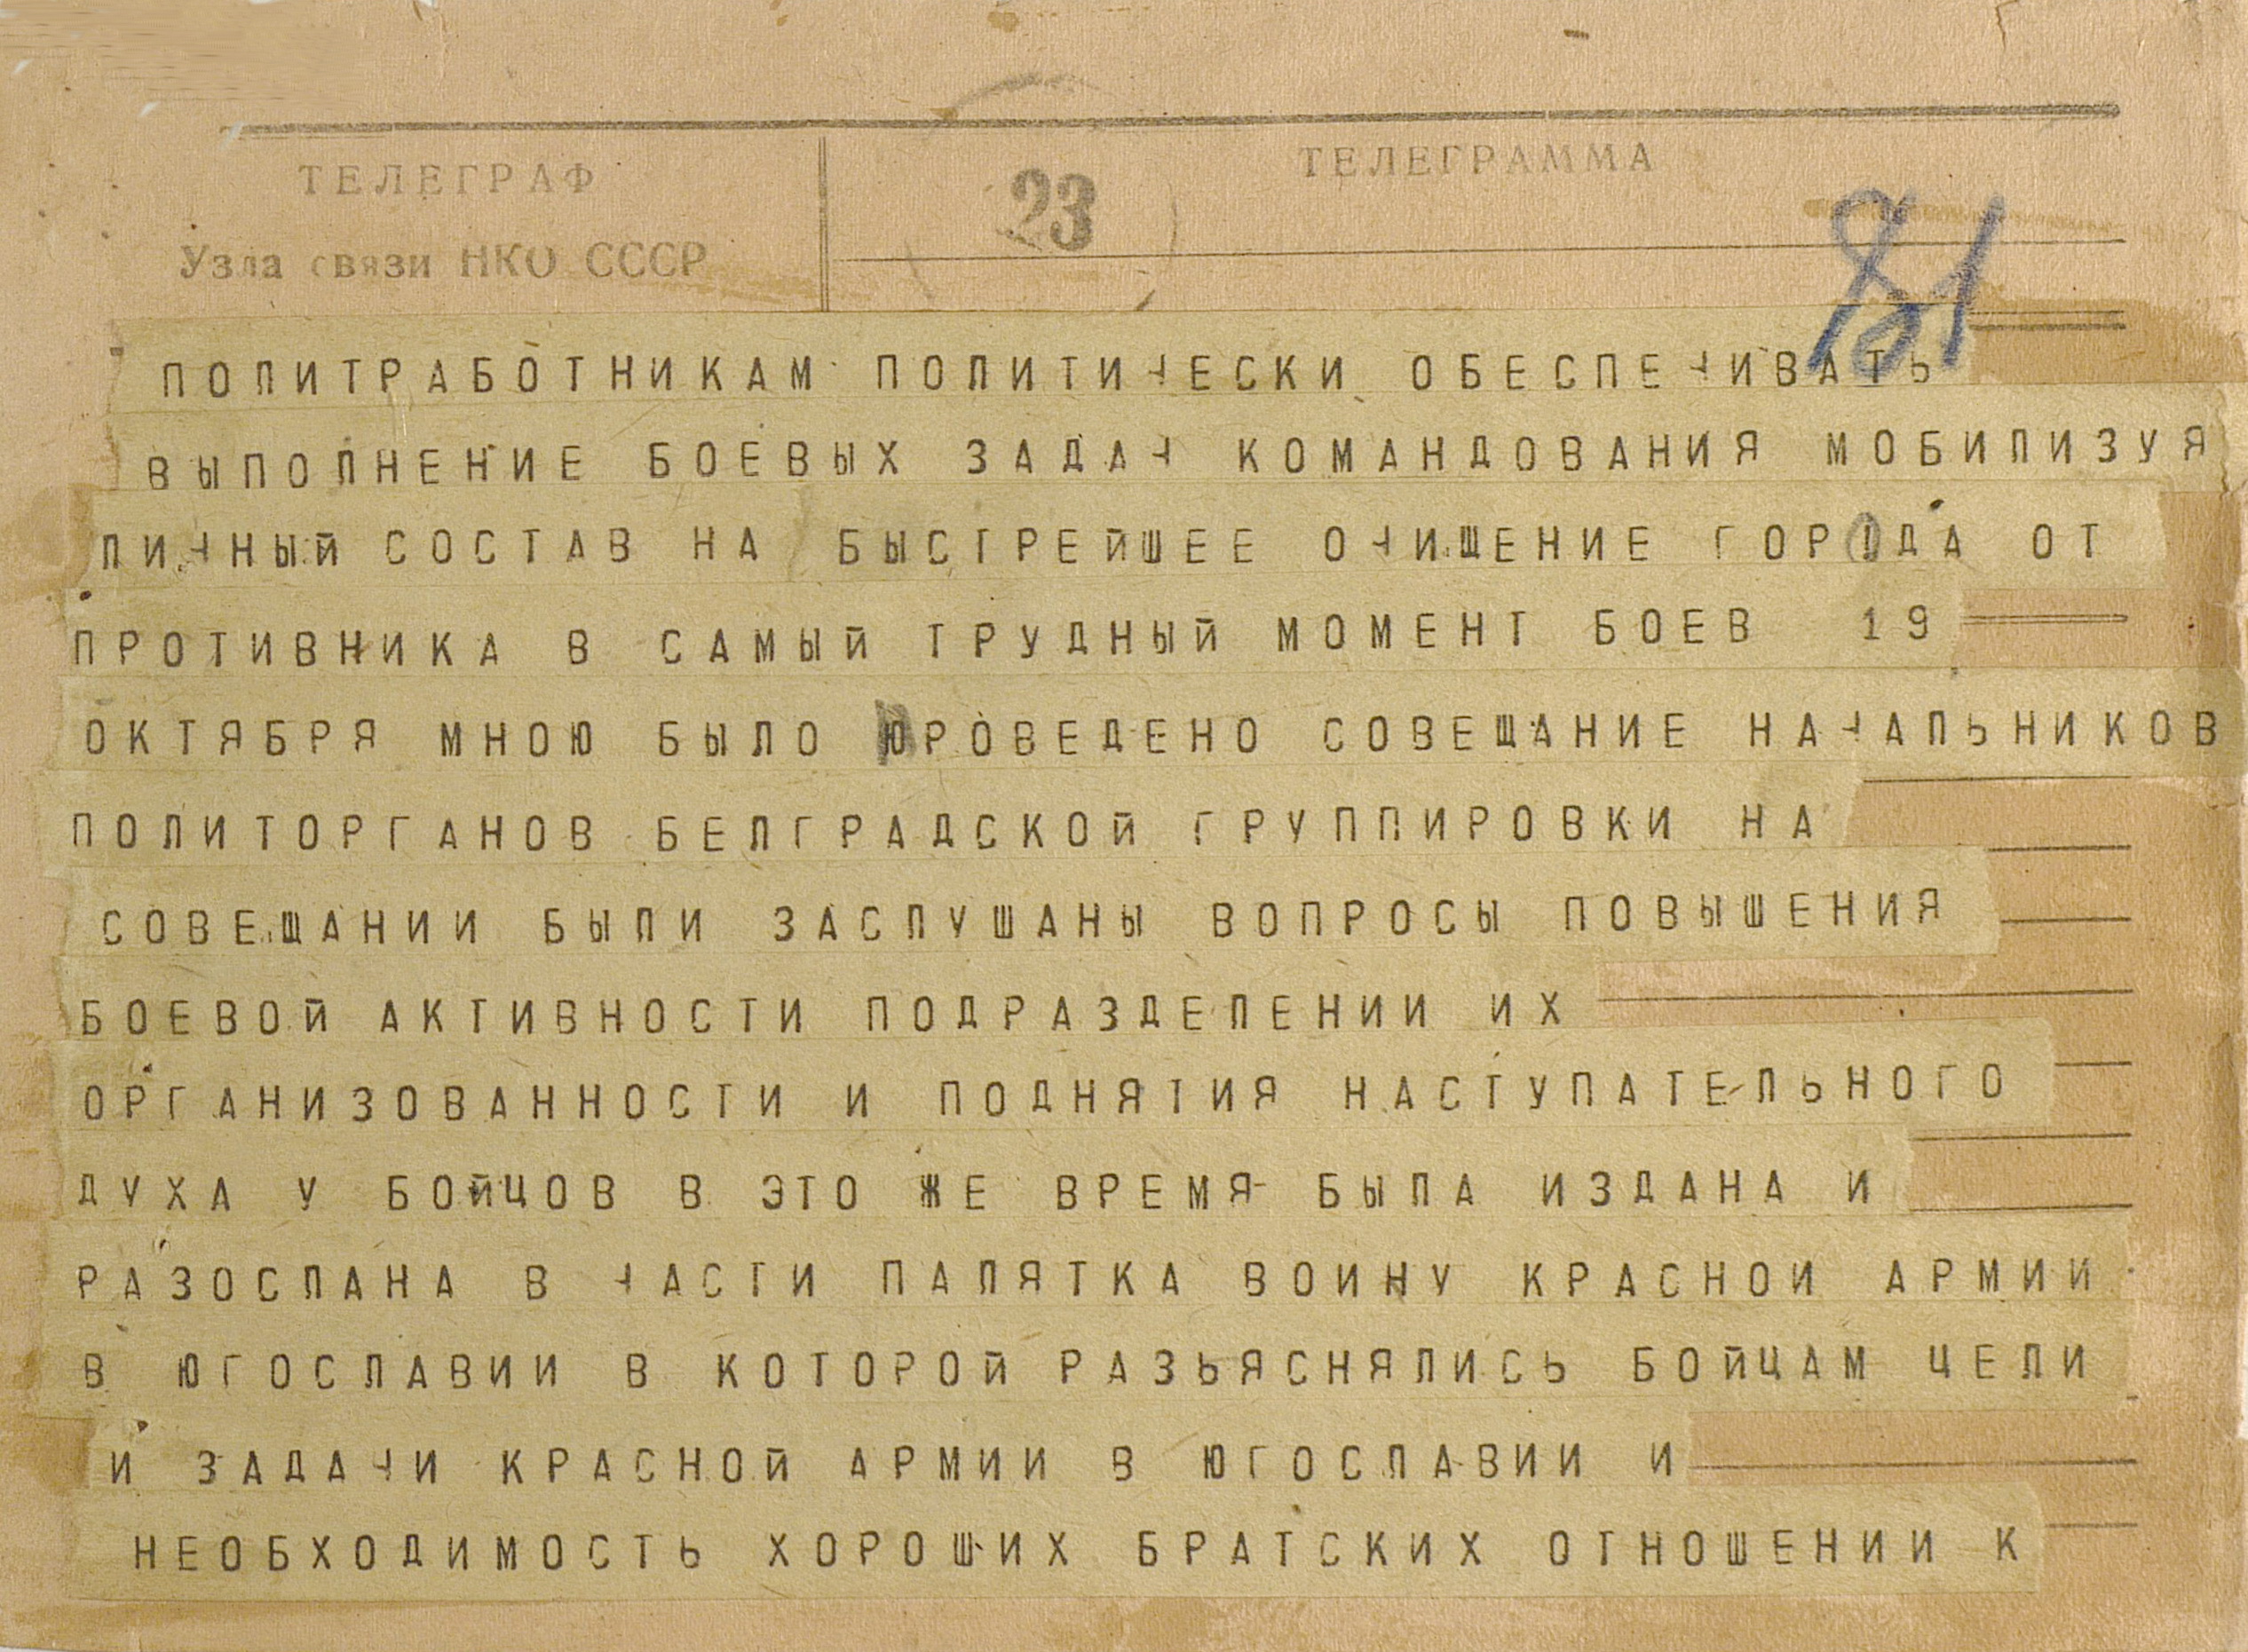 ТЕЛЕГРАФ
Узла связи НКО СССР
23
ТЕЛЕГРАММА
81
ПОЛИТРАБОТНИКАМ ПОЛИТИЧЕСКИ ОБЕСПЕЧИВАТЬ
ВЫПОЛНЕНИЕ БОЕВЫХ ЗАДАЧ КОМАНДОВАНИЯ МОБИЛИЗУЯ
ЛИЧНЫЙ СОСТАВ НА БЫСТРЕЙШЕЕ ОЧИЩЕНИЕ ГОРОДА ОТ
ПРОТИВНИКА В САМЫЙ ТРУДНЫЙ МОМЕНТ БОЕВ 19
ОКТЯБРЯ МНОЮ БЫЛО ПРОВЕДЕНО СОВЕЩАНИЕ НАЧАЛЬНИКОВ
ПОЛИТОРГАНОВ БЕЛГРАДСКОЙ ГРУППИРОВКИ НА
СОВЕЩАНИИ БЫЛИ ЗАСЛУШАНЫ ВОПРОСЫ ПОВЫШЕНИЯ
БОЕВОЙ АКТИВНОСТИ ПОДРАЗДЕЛЕНИИ ИХ
ОРГАНИЗОВАННОСТИ И ПОДНЯТИЯ НАСТУПАТЕЛЬНОГО
ДУХА У БОЙЦОВ В ЭТО ЖЕ ВРЕМЯ БЫЛА ИЗДАНА И
РАЗОСЛАНА В ЧАСТИ ПАЛЯТКА ВОИНУ КРАСНОИ АРМИИ
В ЮГОСЛАВИИ В КОТОРОЙ РАЗЬЯСНЯЛИСЬ БОЙЦАМ ЦЕЛИ
И ЗАДАЧИ КРАСНОЙ АРМИИ В ЮГОСЛАВИИ И
НЕОБХОДИМОСТЬ ХОРОШИХ БРАТСКИХ ОТНОШЕНИИ К